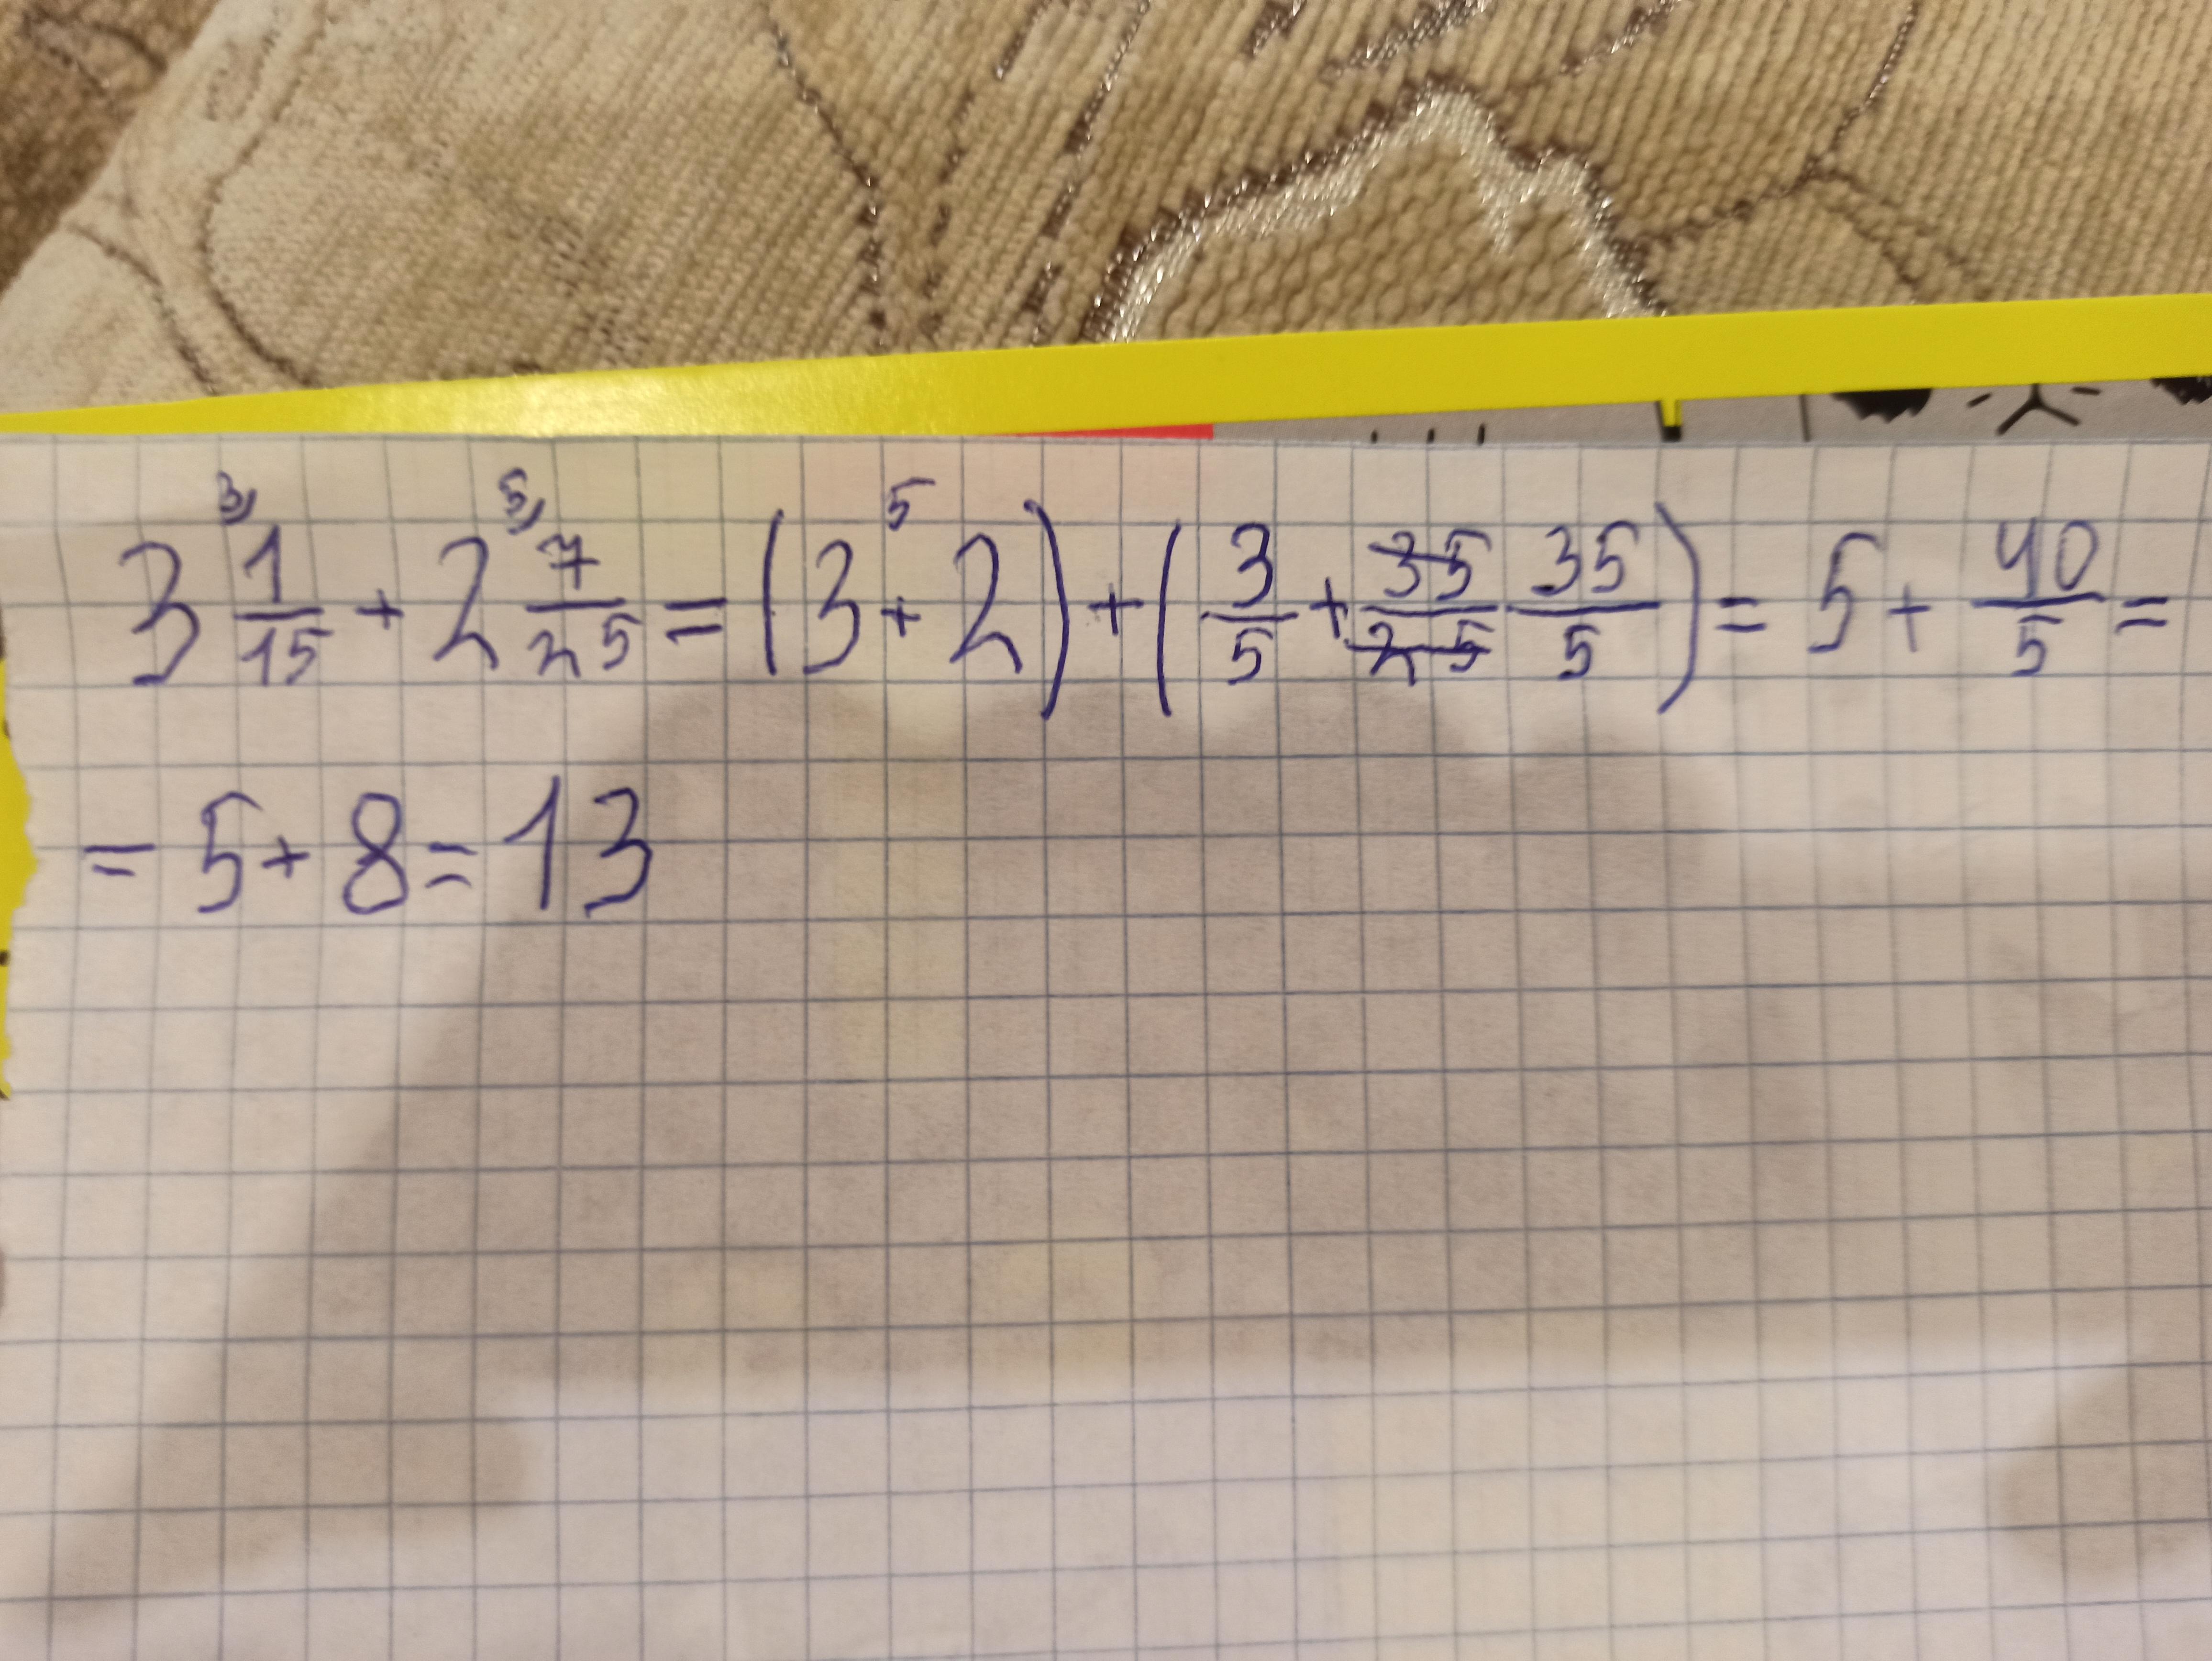 3 ³⁾1/15 + 2 ⁵⁾7/25 = (3 + 2)⁵ + (3/5 + ~~35/25~~ 35/5) = 5 + 40/5 =
= 5 + 8 = 13